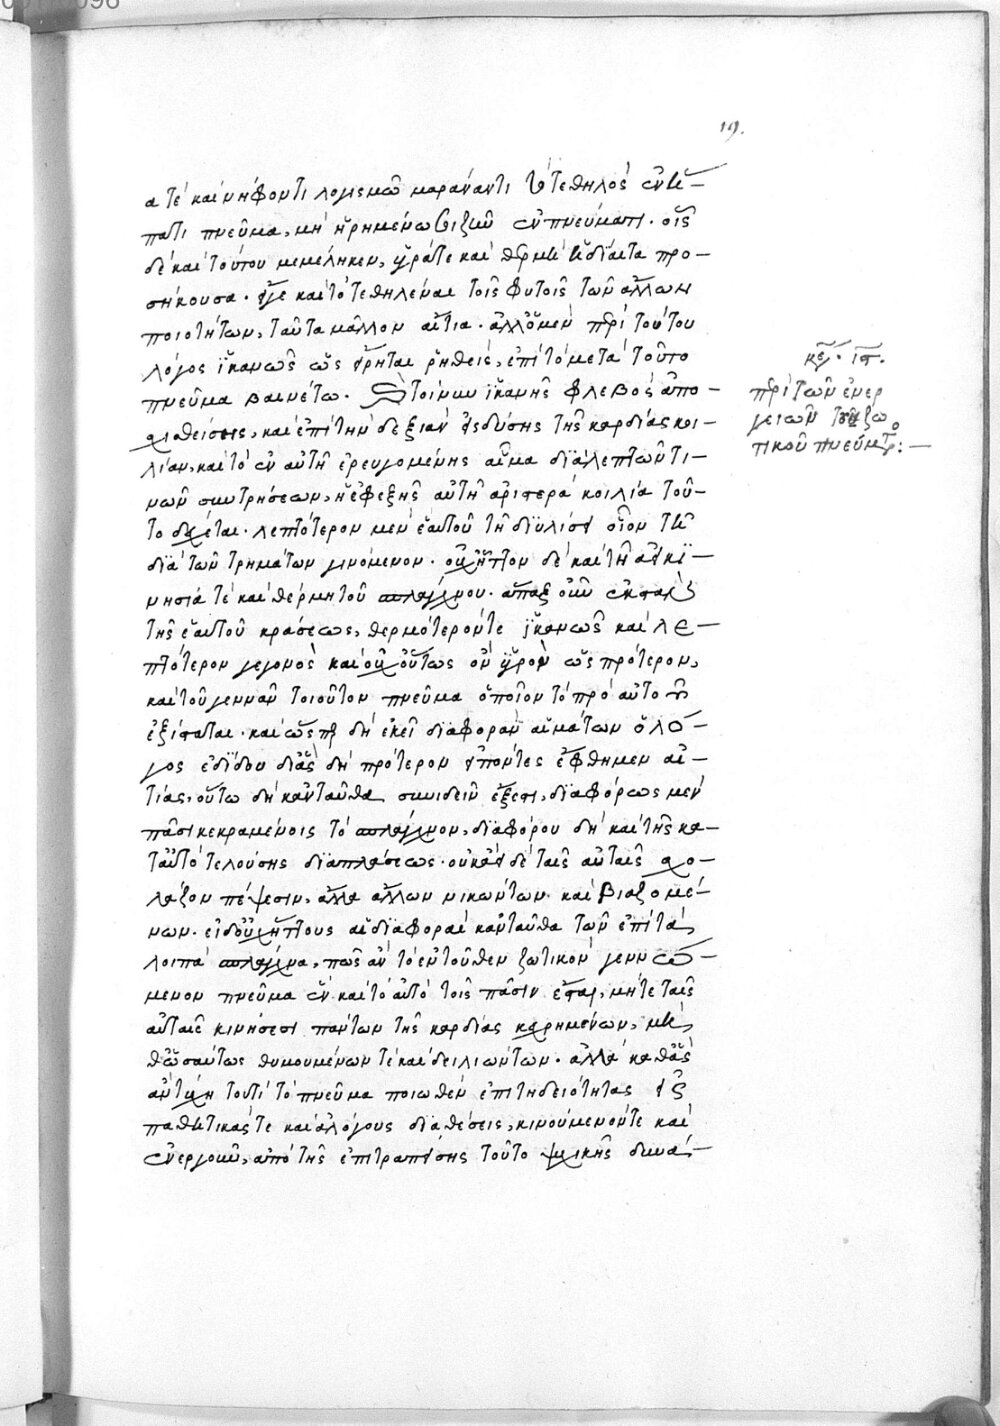 19.
ατέ καὶ νήφοντι λογισμῶ μαράναντι τότε θηλὸς ἐν
παντι πνεῦμα, μὴ ἠρημένω ἐν πνεύματι. οἷς
δὲ καὶ τούτου μεμέληκεν, ὑγρά τε καὶ θερμὴ ἡ δίαιτα προ-
σήκουσα. καὶ τὸ τεθηλέναι τοῖς φυτοῖς τῶν ἄλλων
ποιοτήτων, ταῦτα μᾶλλον αἴτια. ἀλλ' ὁ μὲν περὶ τούτου
λόγος ἱκανῶς ὡς εἴρηται ῥηθεὶς, ἐπὶ τὸ μετὰ τοῦτο
πνεῦμα βαινέτω. τοίνυν ἱκανῆς φλεβὸς ἀπο-
σχισθείσης, καὶ ἐπὶ τὴν δεξιὰν εἰσδύσης τῆς καρδίας κοι-
λίαν, καὶ τὸ ἐν αὐτῆ ἐρευγομένης αἷμα διὰ λεπτῶν τι-
νῶν συντρήσεων, ἡ ἐφεξῆς αὐτῆ ἀριστερὰ κοιλία τοῦ-
το δέχεται. λεπτότερον μὲν ἑαυτοῦ τῆ διϋλίσει οἷον τῆ
διὰ τῶν τρημάτων γινόμενον. οὐχ ἧττον δὲ καὶ τῆ ἀεικι-
νησία τε καὶ θέρμη τοῦ σπλάγχνου. ἅπαξ οὖν ἐκστὰν
τῆς ἑαυτοῦ κράσεως, θερμότερόν τε ἱκανῶς καὶ λε-
πτότερον γεγονὸς καὶ οὐχ οὕτως ὂν ὑγρὸν ὡς πρότερον,
καὶ τοῦ γεννᾶν τοιοῦτον πνεῦμα ὁποῖον τὸ πρὸ αὐτοῦ
ἐξίσταται. καὶ ὥσπερ δὴ ἐκεῖ διαφορὰν αἱμάτων ὁ λό-
γος ἐδίδου δι' ἃς δὴ πρότερον εἰπόντες ἔφθημεν αἰ-
τίας, οὕτω δὴ κἀνταῦθα συνιδεῖν ἔξεστι, διαφόρως μὲν
πᾶσι κεκραμένοις τὸ σπλάγχνον, διαφόρου δὴ καὶ τῆς κα-
τ' αὐτὸ τελούσης διαπλάσεως. οὐκ ἂν δὲ ταῖς αὐταῖς σχο-
λάζον πέψεσιν, ἄλλα ἄλλων νικώντων καὶ βιαζομέ-
νων. εἰ δ' οὐχ ἥττους αἱ διαφοραὶ κἀνταῦθα τῶν ἐπὶ τὰ
λοιπὰ σπλάγχνα, πῶς ἂν τὸ ἐντεῦθεν ζωτικὸν γεννώ-
μενον πνεῦμα ἓν καὶ τὸ αὐτὸ τοῖς πᾶσιν ἔσται, μήτε ταῖς
αὐταῖς κινήσεσι πάντων τῆς καρδίας κεχρημένων, μή-
θ' ὡσαύτως θυμουμένων τε καὶ δειλιώντων. ἀλλὰ καθ' ἃς
ἂν τύχη τουτὶ τὸ πνεῦμα ποιωθὲν ἐπιτηδειότητας εἰς
παθητικάς τε καὶ ἀλόγους διαθέσεις, κινούμενόν τε καὶ
ἐνεργοῦν, ἀπὸ τῆς ἐπιτραπείσης τοῦτο ψυχικῆς δυνά-
κεφ. ιστ.
περὶ τῶν ἐνερ
γειῶν τοῦ ζω
τικοῦ πνεύματος:-